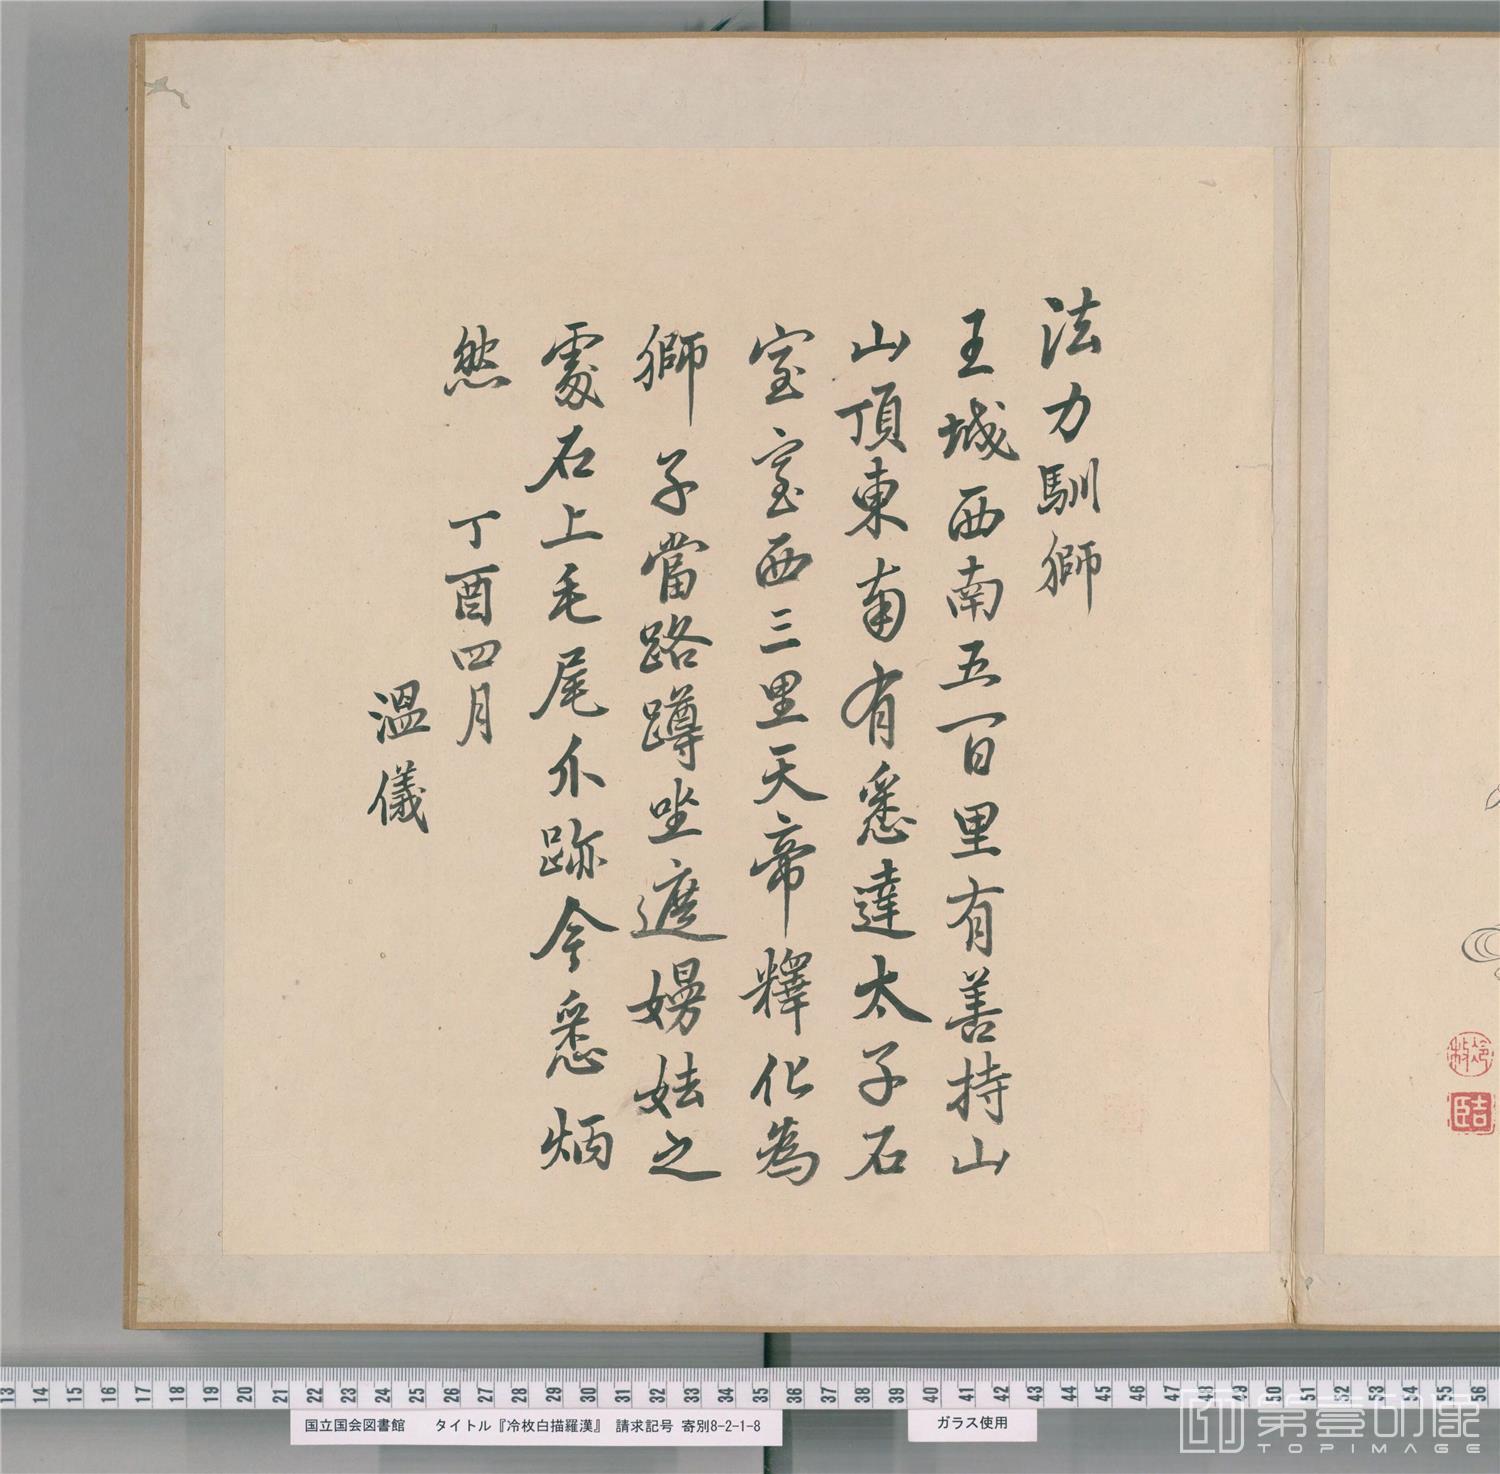 法力馴獅
王城西南五百里有善持山
山頂東南有悉達太子石
室室西三里天帝釋化為
獅子當路蹲坐遮嫚妶之
處石上毛尾爪跡今悉炳
然 丁酉四月
溫儀
冷枚
吉臣
13 14 15 16 17 18 19 20 21 22 23 24 25 26 27 28 29 30 31 32 33 34 35 36 37 38 39 40 41 42 43 44 45 46 47 48 49 50 51 52 53 54 55 56
国立国会図書館 タイトル『冷枚白描羅漢』 請求記号 寄別8-2-1-8
ガラス使用
第壹印像
TOPIMAGE